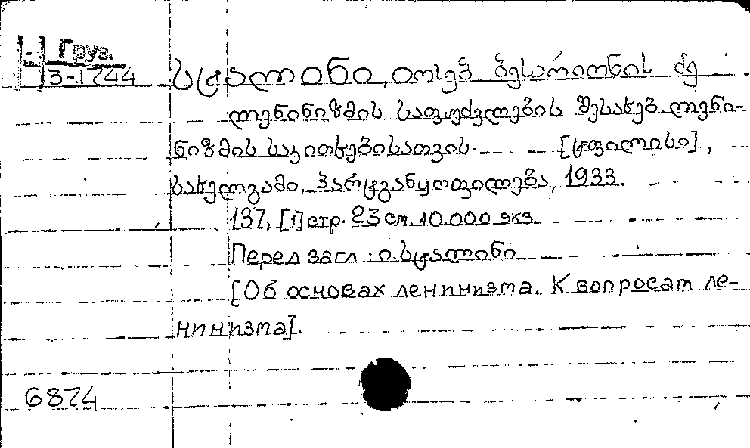 Груз.
3-1744
სტალინი, იოსებ ბესარიონის ძე
ლენინიზმის საფუძვლების შესახებ. ლენი-
ნიზმის საკითხებისათვის. [ტფილისი],
სახელგამი, პარტგანყოფილება, 1933.
137, [1] стр. 23 см. 10.000 экз.
Перед загл: ი. სტალინი
[Об основах ленинизма. К вопросам ле-
нинизма].
6874